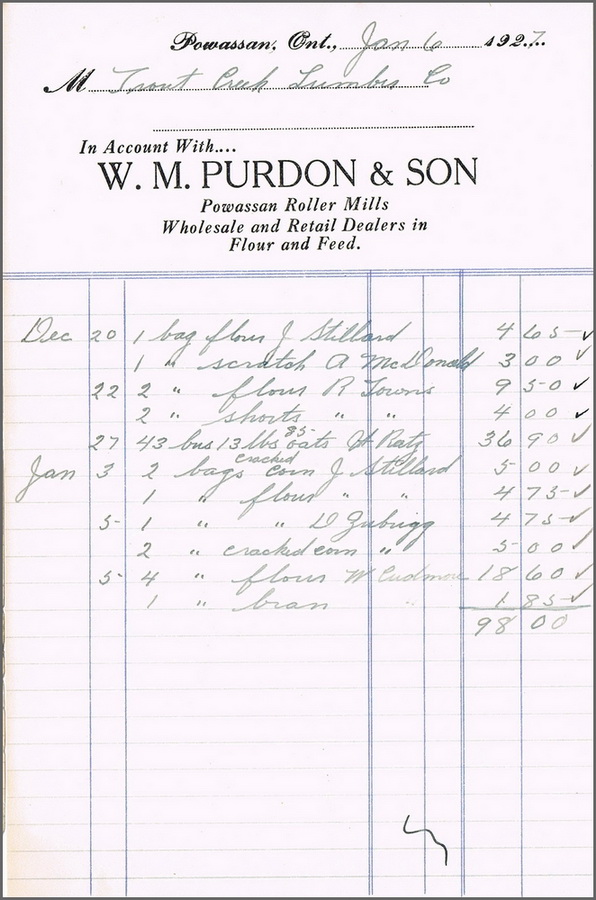 Powassan, Ont., Jan 6 1927.
M Trout Creek Lumber Co
In Account With....
W. M. PURDON & SON
Powassan Roller Mills
Wholesale and Retail Dealers in
Flour and Feed.
Dec 20 1 bag flour J Stillard 4 65 ✓
1 " scratch A McDonald 3 00 ✓
22 2 " flour R Towns 9 50 ✓
2 " shorts " " 4 00 ✓
27 43 bus 13 lbs oats 85 H Ratz 36 90 ✓
Jan 3 2 bags cracked corn J Stillard 5 00 ✓
1 " flour " " 4 75 ✓
5 1 " " D Zubrigg 4 75 ✓
2 " cracked corn " 5 00 ✓
5 4 " flour W Cudmore 18 60 ✓
1 " bran " 1 85 ✓
98 00